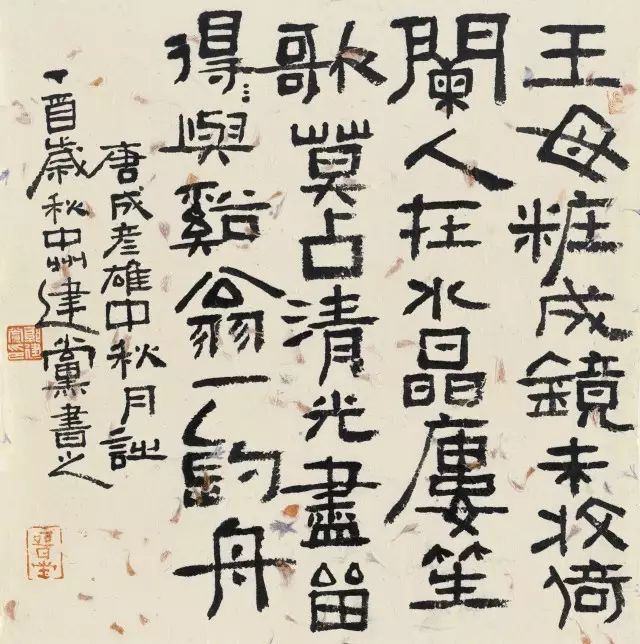 王母粧成鏡未收倚
闌人在水晶廔笙
歌莫占清光盡畱
得與谿翁一釣舟
唐成彥雄中秋月詩
丁酉歲秋中州建黨書之